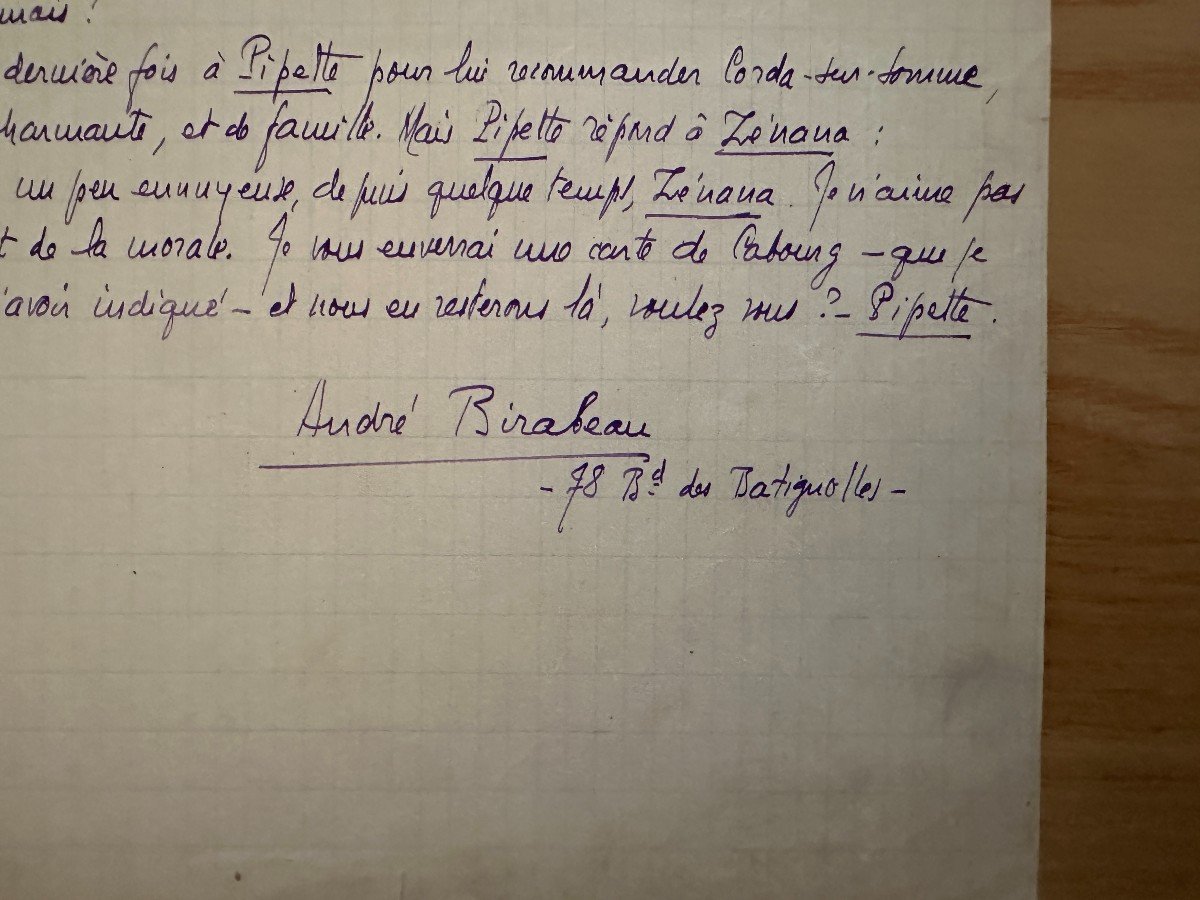 mais !
dernière fois à Pipette pour lui recommander Corda-sur-Somme,
harmante, et de famille. Mais Pipette répond à Zénana :
un peu ennuyeuse, depuis quelque temps, Zénana. Je n'aime pas
t de la morale. Je vous enverrai une carte de Cabourg – que je
'avoir indiqué – et nous en resterons là, voulez vous ? – Pipette.
André Birabeau
- 78 Bd des Batignolles -